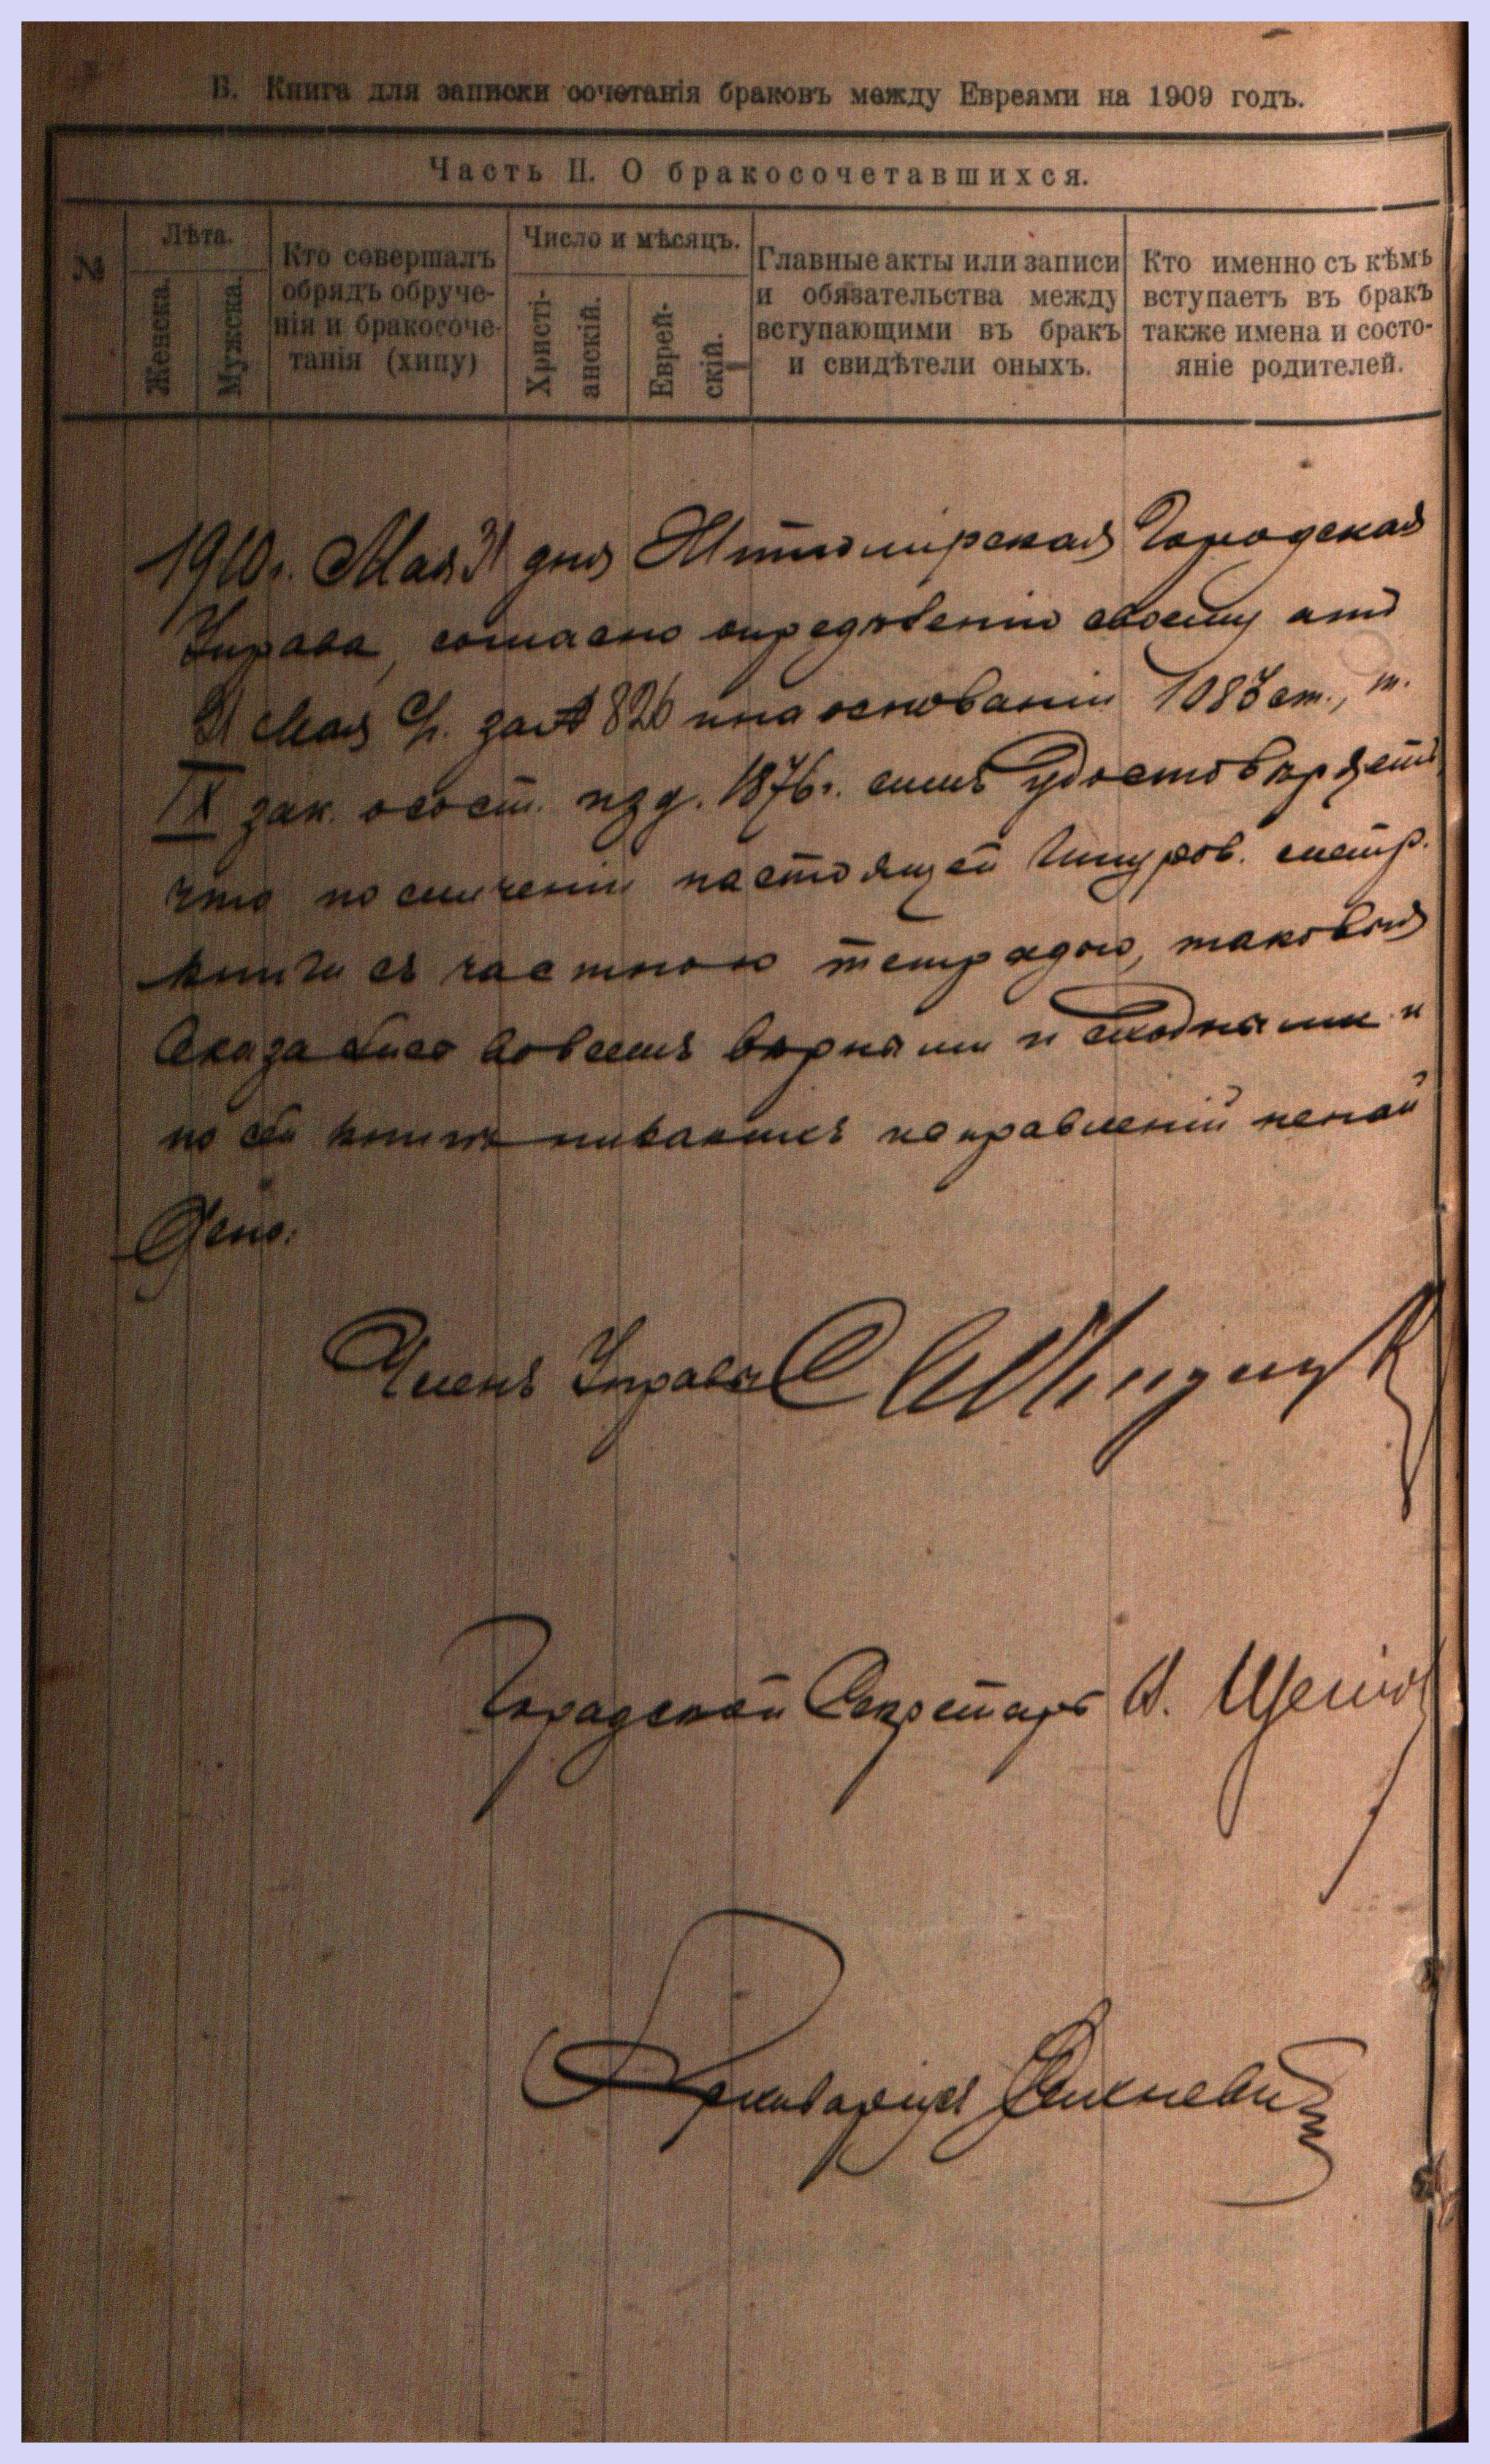 Б. Книга для записки сочетанія браковъ между Евреями на 1909 годъ.
Часть II. О бракосочетавшихся.
№
Лѣта.
Женска.
Мужска.
Кто совершалъ
обрядъ обруче-
нія и бракосоче-
танія (хипу)
Число и мѣсяцъ.
Христі-
анскій.
Еврей-
скій.
Главные акты или записи
и обязательства между
вступающими въ бракъ
и свидѣтели оныхъ.
Кто именно съ кѣмъ
вступаетъ въ бракъ
также имена и состо-
яніе родителей.
1910г. Мая 31 дня Житомирская Городская
Управа, согласно опредѣленію своему отъ
31 Мая С/г. за № 826 и на основаніи 1083 ст., т.
IX зак. о сост. изд. 1876г. симъ удостовѣряетъ
что по сличеніи настоящей Шнуров. метр.
книги съ частною тетрадью, таковыя
оказались вовсемъ вѣрными и сходными и
по сей книгѣ никакихъ исправленій ненай
дено.
Членъ Управы
Городской Секретарь
Архиваріусъ